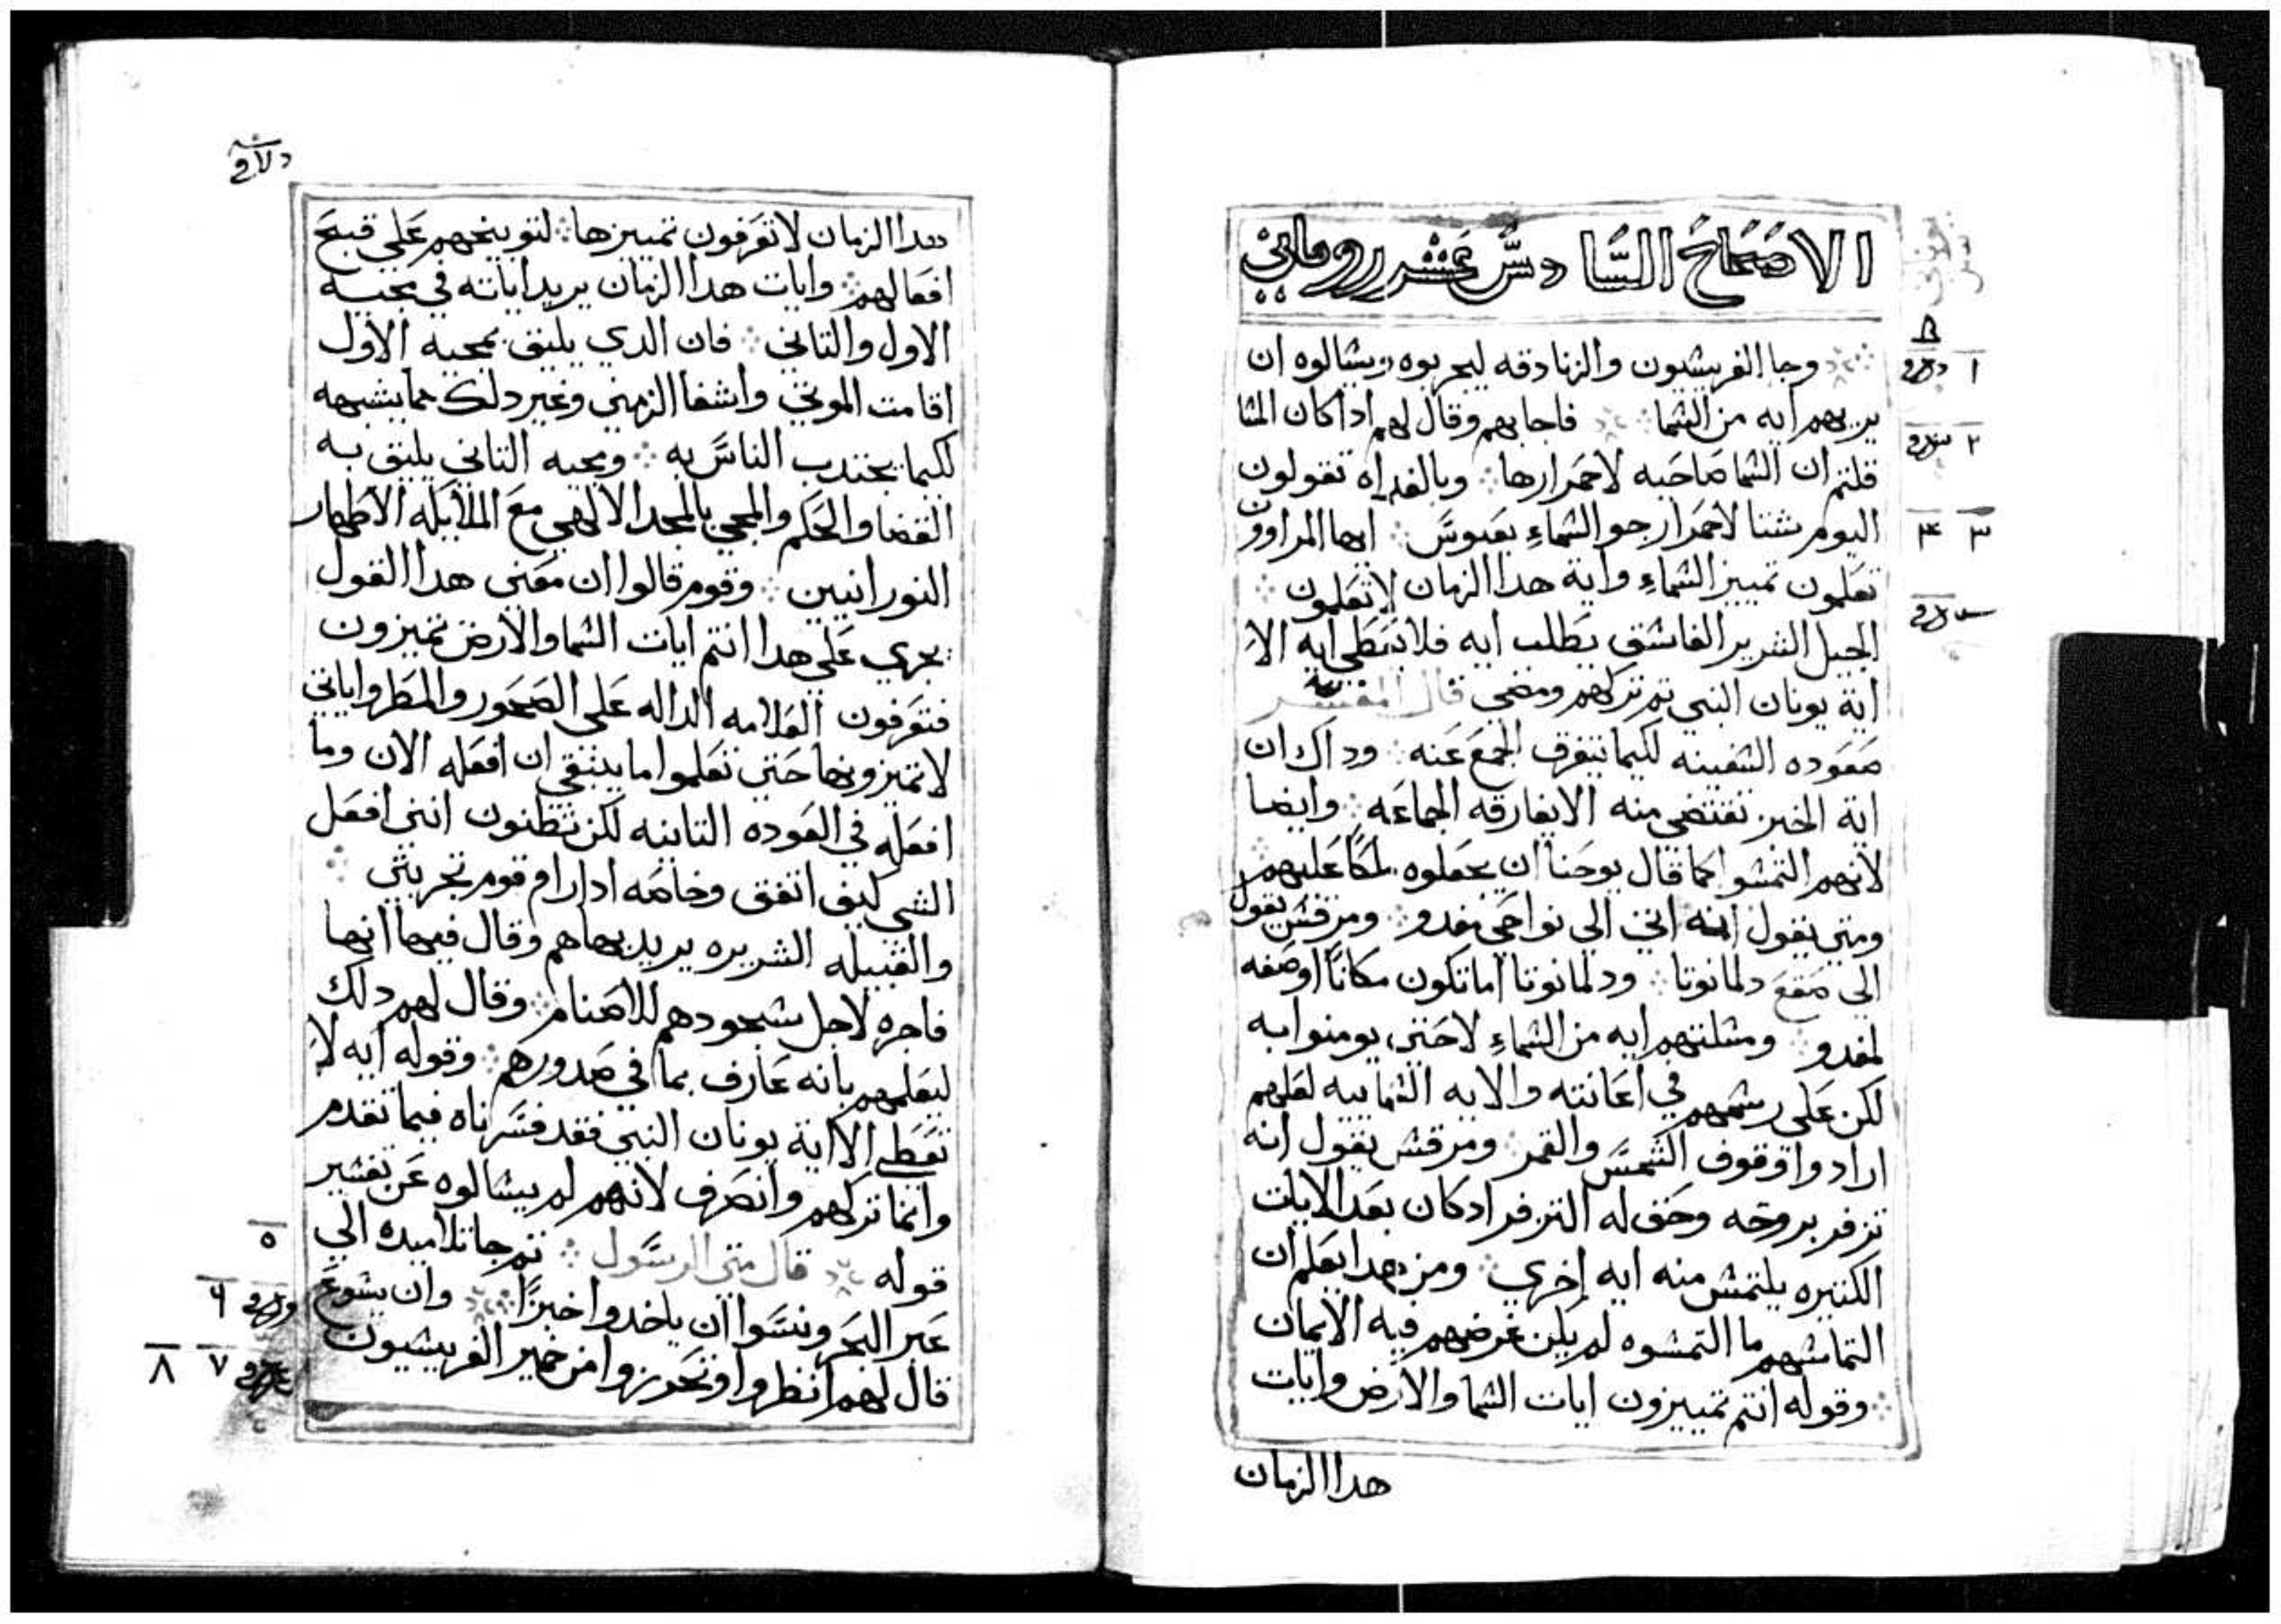 الاصحاح السادس عشر روماني
وجا الفريسيون والزنادقه ليجربوه ويسالوه ان
يريهم ايه من السما فاجابهم وقال لهم ادا كان المسا
قلتم ان السما صاحيه لاحمرارها وبالغداه تقولون
اليوم شتا لاحمرار جو السماءِ بعبوس ايها المراوون
تعلمون تمييز السماءِ واية هدا الزمان لا تعلمون
الجيل الشرير الفاسق يطلب ايه فلا يعطي ايه الا
اية يونان النبي تم تركهم ومضي قال المفسر
صعوده السفينه لكيما يتفرق الجمع عنه وداك ان
اية الخبز تقتضي منه الا يفارقه الجماعه وايضا
لانهم التمسوا كما قال يوحنا ان يجعلوه ملكاً عليهم
ومتي يقول انه اتي الي نواحي مغدو ومرقس يقول
الي صقع دلمانوتا ودلمانوتا اما تكون مكاناً او صفه
لمغدو ومسلتهم ايه من السماءِ لا حتي يومنوا به
لكن علي رسمهم في اعانته والايه السماييه لعلهم
ارادوا وقوف الشمس والقمر ومرقس يقول انه
تزفر بروحه وحق له التزفر ادكان بعد الايات
الكتيره يلتمس منه ايه اخري ومن هدا يعلم ان
التماسهم ما التمسوه لم يكن غرضهم فيه الايمان
وقوله انتم تمييزون ايات السما والارض وايات
هدا الزمان
هدا الزمان لا تعرفون تمييزها لتوبيخهم علي قبيح
افعالهم وايات هدا الزمان يريد اياته في مجيه
الاول والتاني فان الدي يليق بمجيه الاول
اقامت الموتي واشفا الزمني وغير دلك مما يشبهه
لكيما يجتدب الناس به ومجيه التاني يليق به
القضا والحكم والمجي بالمجد الالهي مع الملايكه الاطهار
النورانيين وقوم قالوا ان معني هدا القول
يجري علي هدا انتم ايات السما والارض تميزون
فتعرفون العلامه الداله علي الصحو والمطر واياتي
لا تميزونها حتي تعلموا ما ينبغي ان افعله الان وما
افعله في العوده التانيه لكن تظنون انني افعل
الشي كيف اتفق وخاصه ادا رام قوم تجربتي
والقبيله الشريره يريد بها هم وقال فيها انها
فاجره لاجل سجودهم للاصنام وقال لهم دلك
ليعلمهم بانه عارف بما في صدورهم وقوله ايه لا
تعطي الا اية يونان النبي فقد فسرناه فيما تقدم
وانما تركهم وانصرف لانهم لم يسالوه عن تفسير
قوله قال متي الرسول تم جا تلاميده الي
عبر البحر ونسوا ان ياخدوا خبزاً وان يسوع
قال لهم انظروا وتحرزوا من خمير الفريسيون